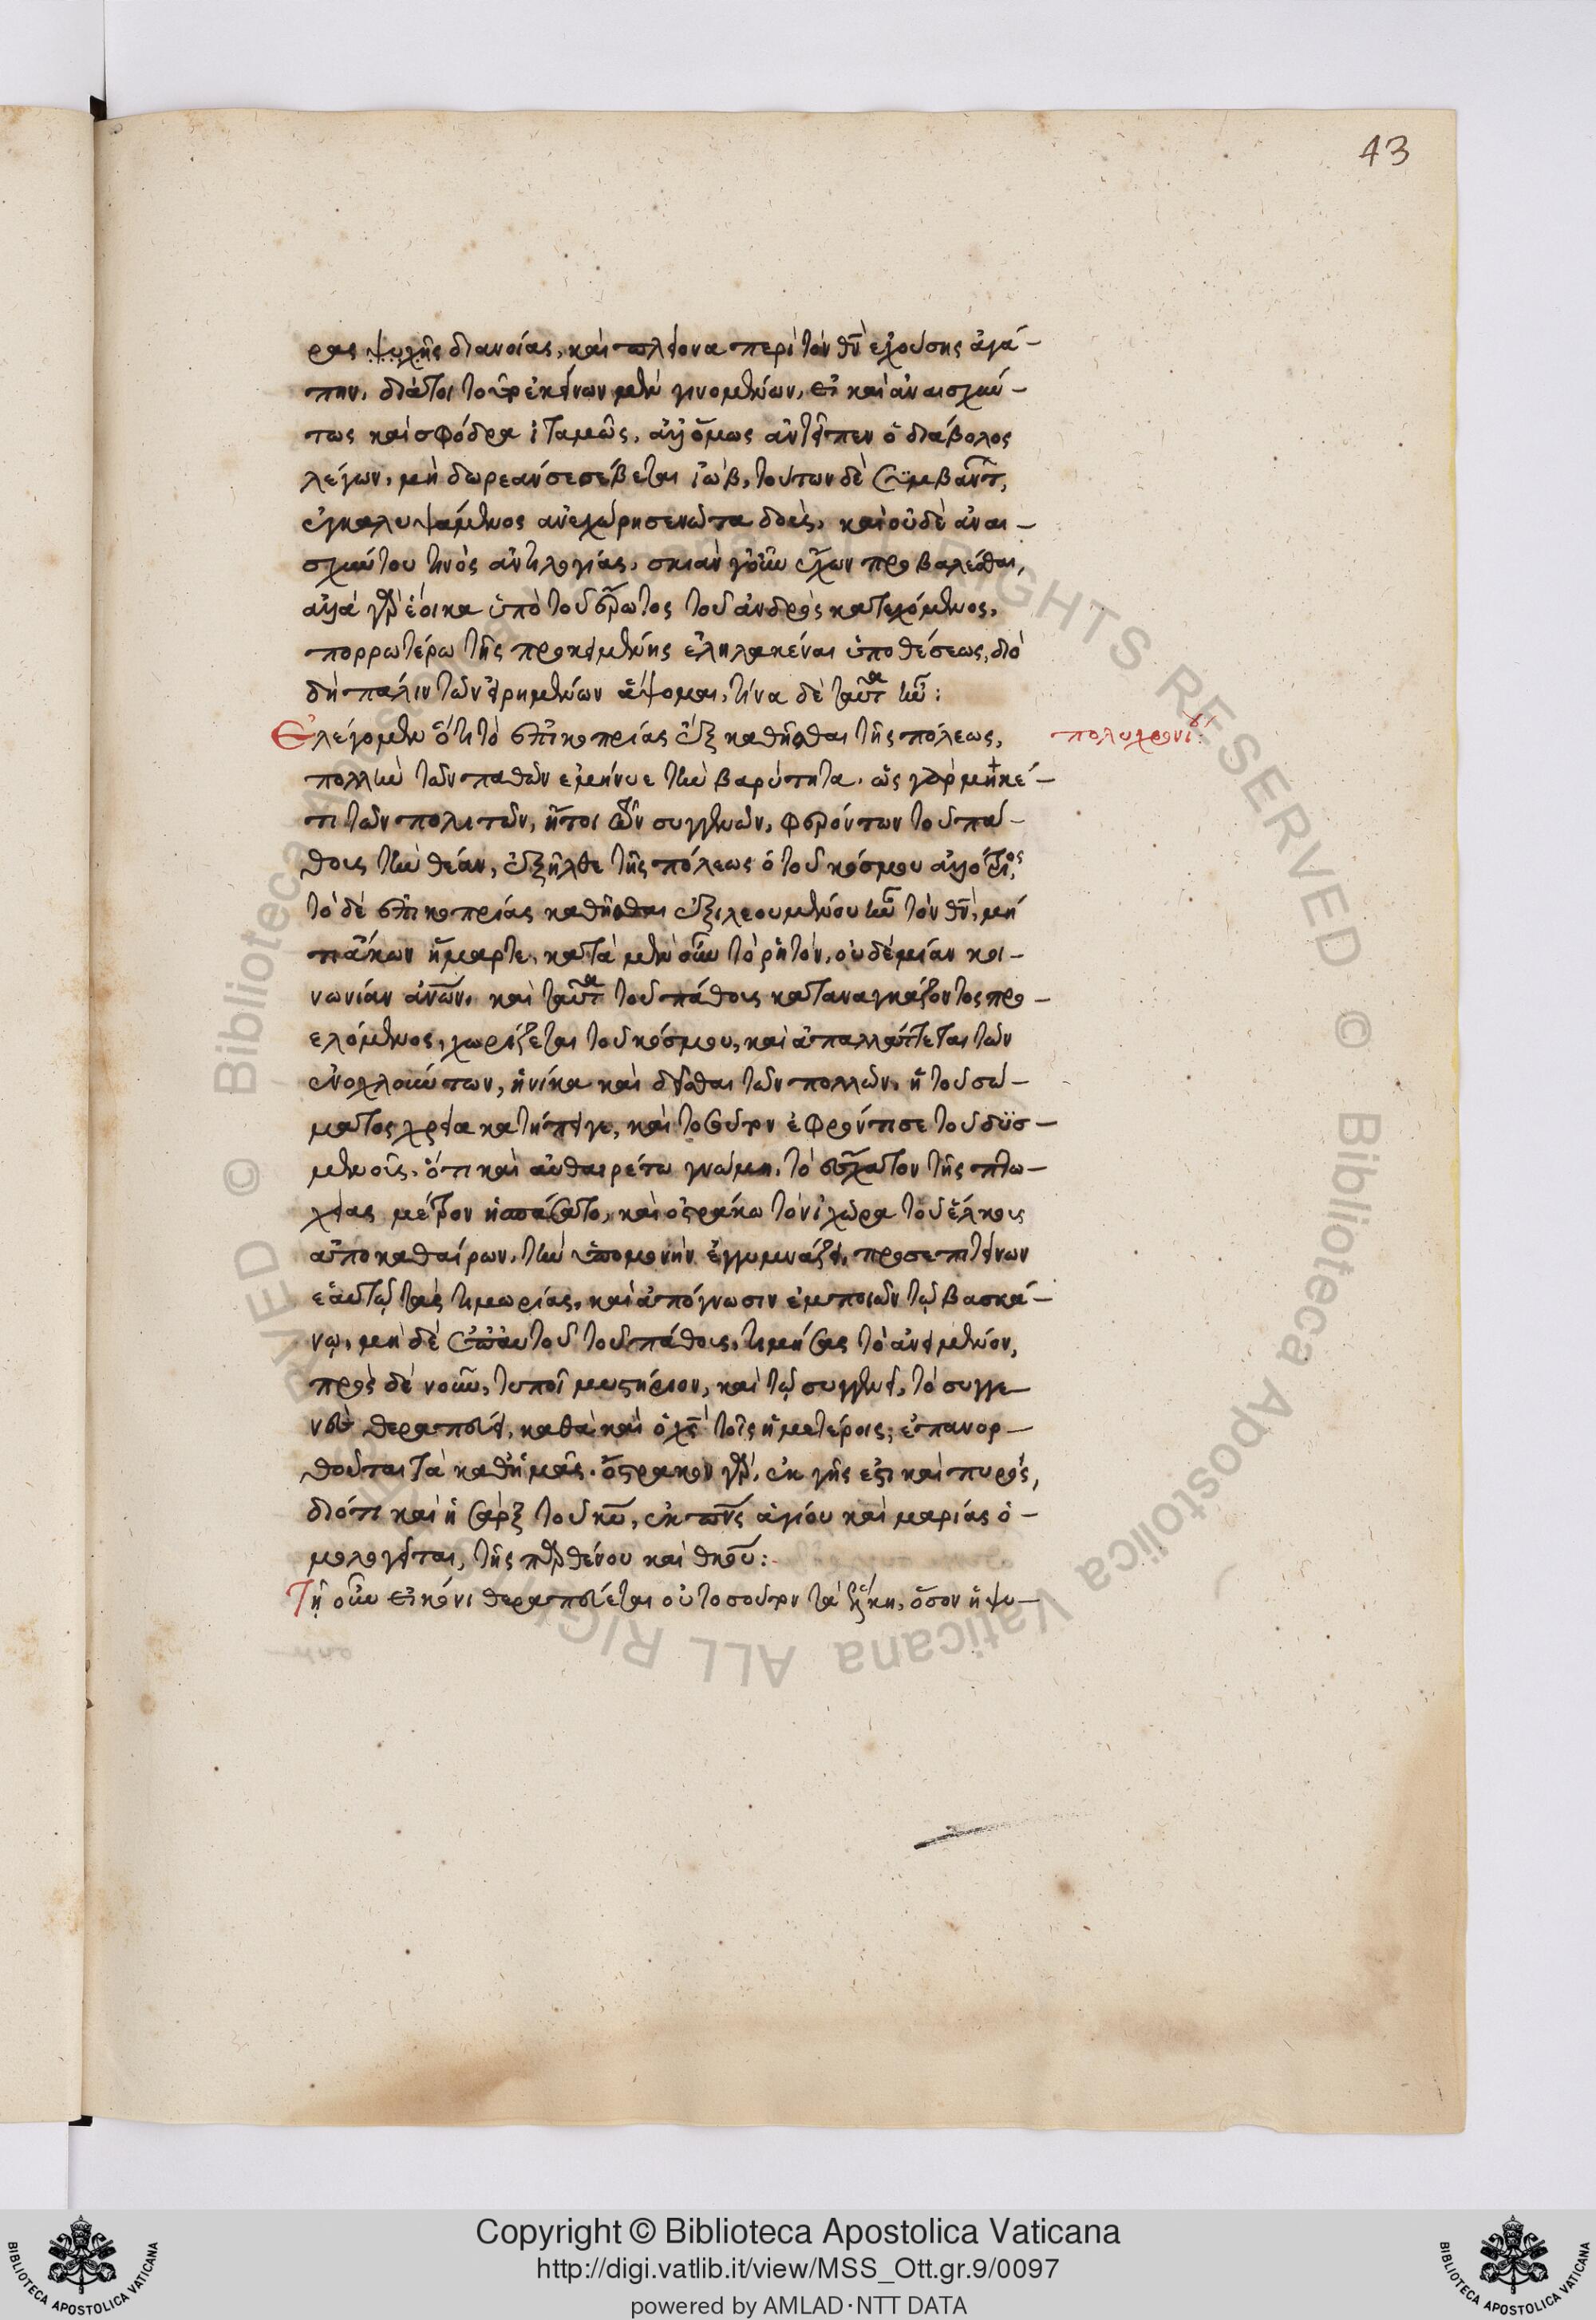 43
ρας ψυχῆς διανοίας, καὶ πλείονα περὶ τὸν θν̄ ἐχούσης ἀγά-
πην, διάτοι τοῦτο ἐκείνων μὲν γινομένων, εἰ καὶ ἀναισχύν-
τως καὶ σφόδρα ἰταμῶς, ἀλλ' ὅμως ἀντεῖπεν ὁ διάβολος
λέγων, μὴ δωρεὰν σε σέβεται ἰώβ, τούτων δὲ συμβάντ,
ἐγκαλυψάμενος ἀνεχώρησεν καὶ οὐδὲ ἀναι-
σχύντου τινὸς ἀντιλογίας, σκιὰν γοῦν ἔχων προβαλέσθαι,
ἀλλὰ γὰρ ἔοικα ὑπὸ τοῦ ἔρωτος τοῦ ἀνδρὸς κατεχόμενος,
πορρωτέρω τῆς προκειμένης ἐληλακέναι ὑποθέσεως, διὸ
δὴ πάλιν τῶν εἰρημένων ἅψομαι, τίνα δὲ ταῦτα ἦν:
Ἐλέγομεν ὅτι τὸ ἐπὶ κοπρίας ἔξω καθῆσθαι τῆς πόλεως, πολυχρονί
πολλὴν τῶν παθῶν ἐμήνυε τὴν βαρύτητα. ὡς γὰρ μηκέ-
τι τῶν πολιτῶν, ἤτοι τῶν συγγενῶν, φερόντων τοῦ πά-
θους τὴν θέαν, ἐξῆλθε τῆς πόλεως ὁ τοῦ κόσμου ἀλλότριος,
τὸ δὲ ἐπὶ κοπρίας καθῆσθαι ἐξιλεουμένου ἦν τὸν θν̄, μή
πάκων ἥμαρτε, κατὰ μὲν οὖν τὸ ῥητόν, οὐδὲ μίαν κοι-
νωνίαν ἀνων̄. καὶ ταῦτα τοῦ πάθους καταναγκάζοντος προ-
ελόμενος, χωρίζεται τοῦ κόσμου, καὶ ἀπαλλάττεται τῶν
ἐνοχλούντων, ἡνίκα καὶ δεῖσθαι τῶν πολλῶν, ἡ τοῦ σώ-
ματος χρεία κατήπειγε, καὶ τοσοῦτον ἐφρόντισε τοῦ δυσ-
μενοῦς, ὅτι καὶ αὐθαιρέτω γνώμη, τὸ ἔσχατον τῆς πτω-
χείας μέτρον ἠσπάσατο, καὶ ὀστράκω τὸν ἰχῶρα τοῦ ἕλκους
ἀποκαθαίρων, τὴν ὑπομονὴν ἐγύμναζε, προσεπιτείνων
ἑαυτῷ τὰς τιμωρίας, καὶ ἀπόγνωσιν ἐμποιῶν τῷ βασκά-
νῳ, μὴ δὲ ἐπ' αὐτοῦ τοῦ πάθους, τιμήσας τὸ ἀνειμένον,
πρὸς δὲ νοῦν, τυποῖ μυστήριον, καὶ τῷ συγγενεῖ, τὸ συγγε
νὲς θεραπεύει, καθὰ καὶ ὁ χς̄ τοῖς ἡμετέροις, ἐπανορ-
θοῦται τὰ καθ' ἡμᾶς. ὄστρακον γὰρ, ἐκ γῆς ἐστι καὶ πυρός,
διότι καὶ ἡ σὰρξ τοῦ κῡ, ἐκ πνς̄ ἁγίου καὶ μαρίας ὁ-
μολογεῖται, τῆς παρθένου καὶ θκου:
Τῇ οὖν εἰκόνι θεραπεύεται οὐ τοσοῦτον τὰ ἕλκη, ὅσον ἡ ψυ-
Copyright © Biblioteca Apostolica Vaticana
http://digi.vatlib.it/view/MSS_Ott.gr.9/0097
powered by AMLAD·NTT DATA